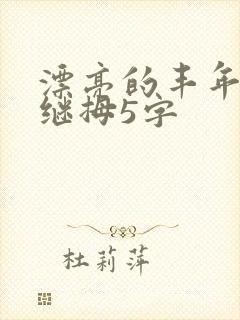 漂亮的丰年
继拇5字
杜莉萍